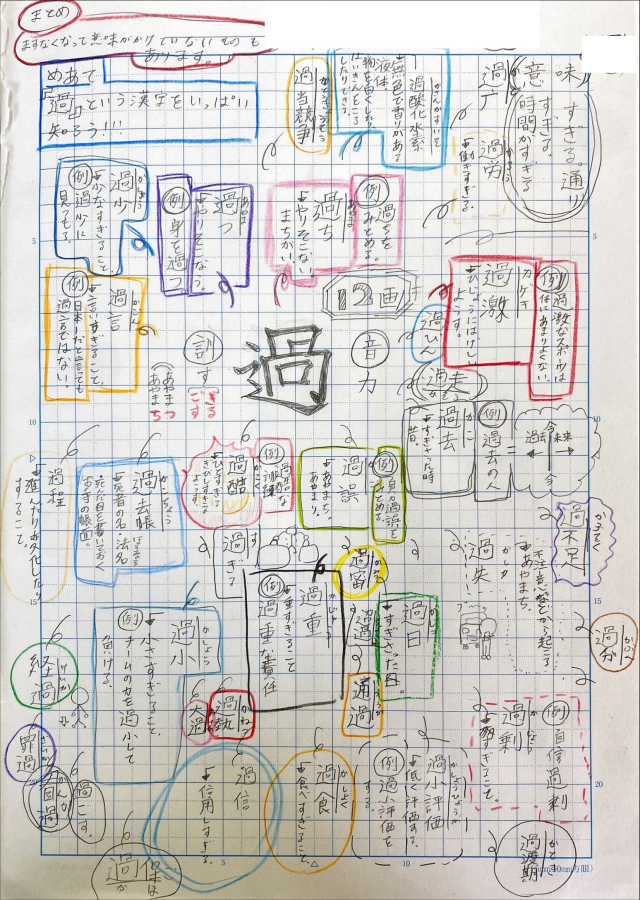 まとめ
ますなくなって意味がかけていないものも
あります。
めあて
「過」という漢字をいっぱい
知ろう!!!
意味
すぎる。通り
すぎる。
時間がすぎる
過労
➡働きすぎる。
かさんかすいそ
過酸化水素
➡無色で香りがある
液体
かとうきょうそう
過当競争
かしょう
過少
➡少なすぎること。
例 過少に
見つもる。
あやま
過つ
➡やりそこなう。
例 身を過つ
あやま
過ち
➡やりそこない。
まちがい。
例 過ちを
みとめる。
カゲキ
過激
➡ひじょうにはげしい
ようす。
例 過激なスポーツは
体にあまりよくない。
かごん
過言
➡言いすぎること。
例 日本一だと言っても
過言ではない。
12画
過
音 カ
訓 す
ぎる
ごす
あやまつ
あやまち
過ぎて
過去
➡すぎさった時
昔。
例 過去の人
過去 今 未来
過誤
➡あやまち。
あやまり。
例 自分の過誤を
みとめる。
過酷
➡ひどすぎる
きびしすぎる
ようす。
例 過酷な
訓練
かこちょう
過去帳
➡死者の名・法名
死んだ日を書いておく
お寺の帳面。
過程
➡進んだり変化したり
すること。
過不足
かしつ
過失
➡不注意などから起こる
あやまち。
過留
過日
➡すぎさった日。
過重
➡重すぎること
例 過重な責任
かしょう
過小
➡小さすぎること。
例 チームの力を過小して
負ける。
通過
超過
過熱
大過
過分
経過
罪過
過ごす。
過信
➡信用しすぎる。
かしょく
過食
➡食べすぎること。
かしょうひょうか
過小評価
➡低く評価する。
例 過小評価を
する。
過剰
例 自信過剰
過渡期